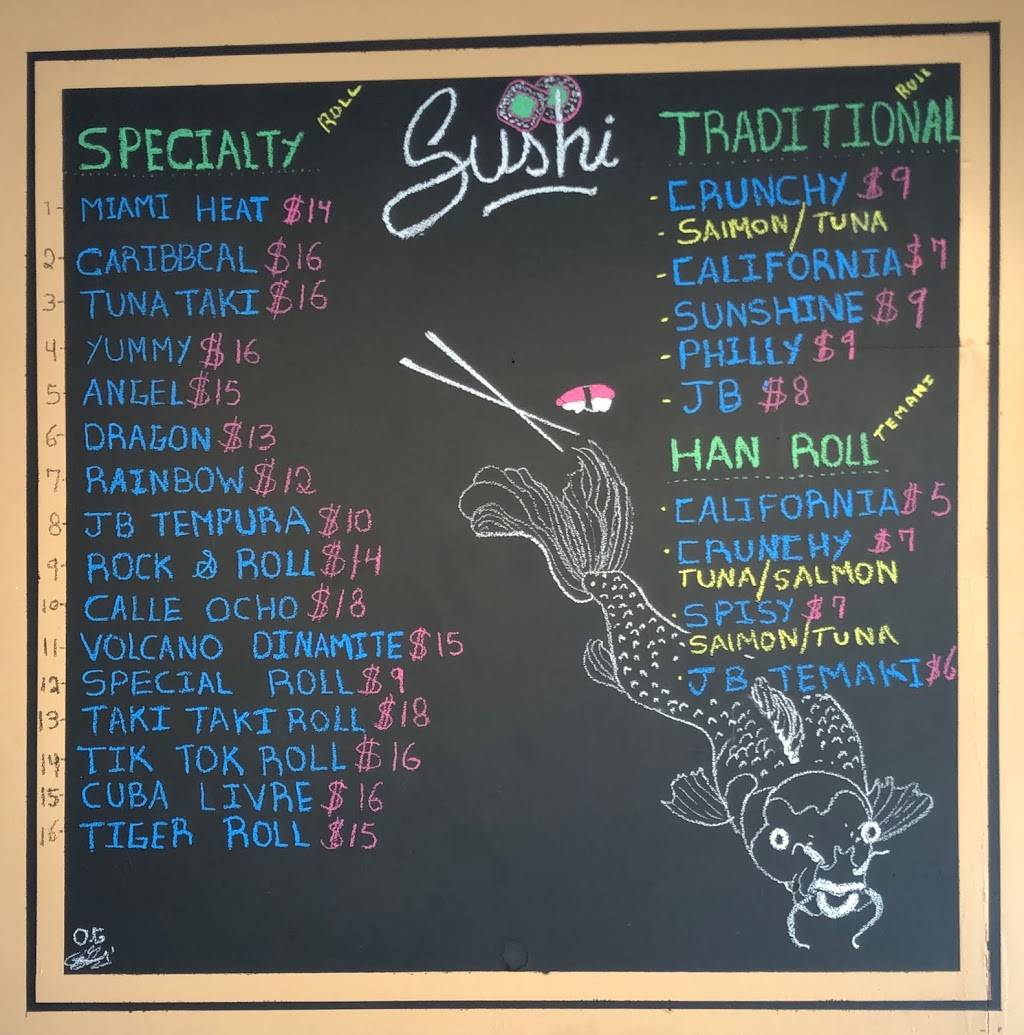 Sushi
SPECIALTY ROLL
1- MIAMI HEAT $14
2- CARIBBEAL $16
3- TUNA TAKI $16
4- YUMMY $16
5- ANGEL $15
6- DRAGON $13
7- RAINBOW $12
8- JB TEMPURA $10
9- ROCK & ROLL $14
10- CALLE OCHO $18
11- VOLCANO DINAMITE $15
12- SPECIAL ROLL $9
13- TAKI TAKI ROLL $18
14- TIK TOK ROLL $16
15- CUBA LIVRE $16
16- TIGER ROLL $15
O.G
TRADITIONAL Roll
- CRUNCHY $9
- SAIMON/TUNA
- CALIFORNIA $7
- SUNSHINE $9
- PHILLY $9
- JB $8
HAN ROLL TEMAKI
· CALIFORNIA $5
· CRUNCHY $7
TUNA/SALMON
· SPISY $7
SAIMON/TUNA
· JB TEMAKI $6